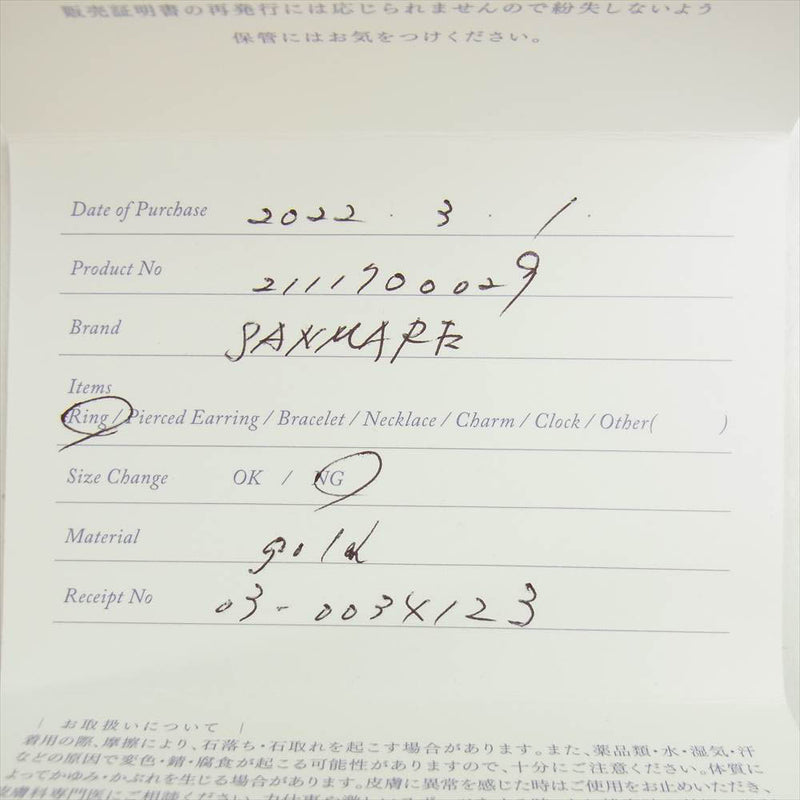 販売証明書の再発行には応じられませんので紛失しないよう
保管にはお気をつけください。
Date of Purchase 2022 . 3 . 1 .
Product No 2111700029
Brand
Items
Ring / Pierced Earring / Bracelet / Necklace / Charm / Clock / Other( )
Size Change OK / NG
Material gold
Receipt No 03-0034123
| お取扱いについて |
着用の際、摩擦により、石落ち・石取れを起こす場合があります。また、薬品類・水・湿気・汗
などの原因で変色・錆・腐食が起こる可能性がありますので、十分にご注意ください。体質に
よってかゆみ・かぶれを生じる場合があります。皮膚に異常を感じた時はご使用をお止めいただき、
皮膚科専門医にご相談ください。